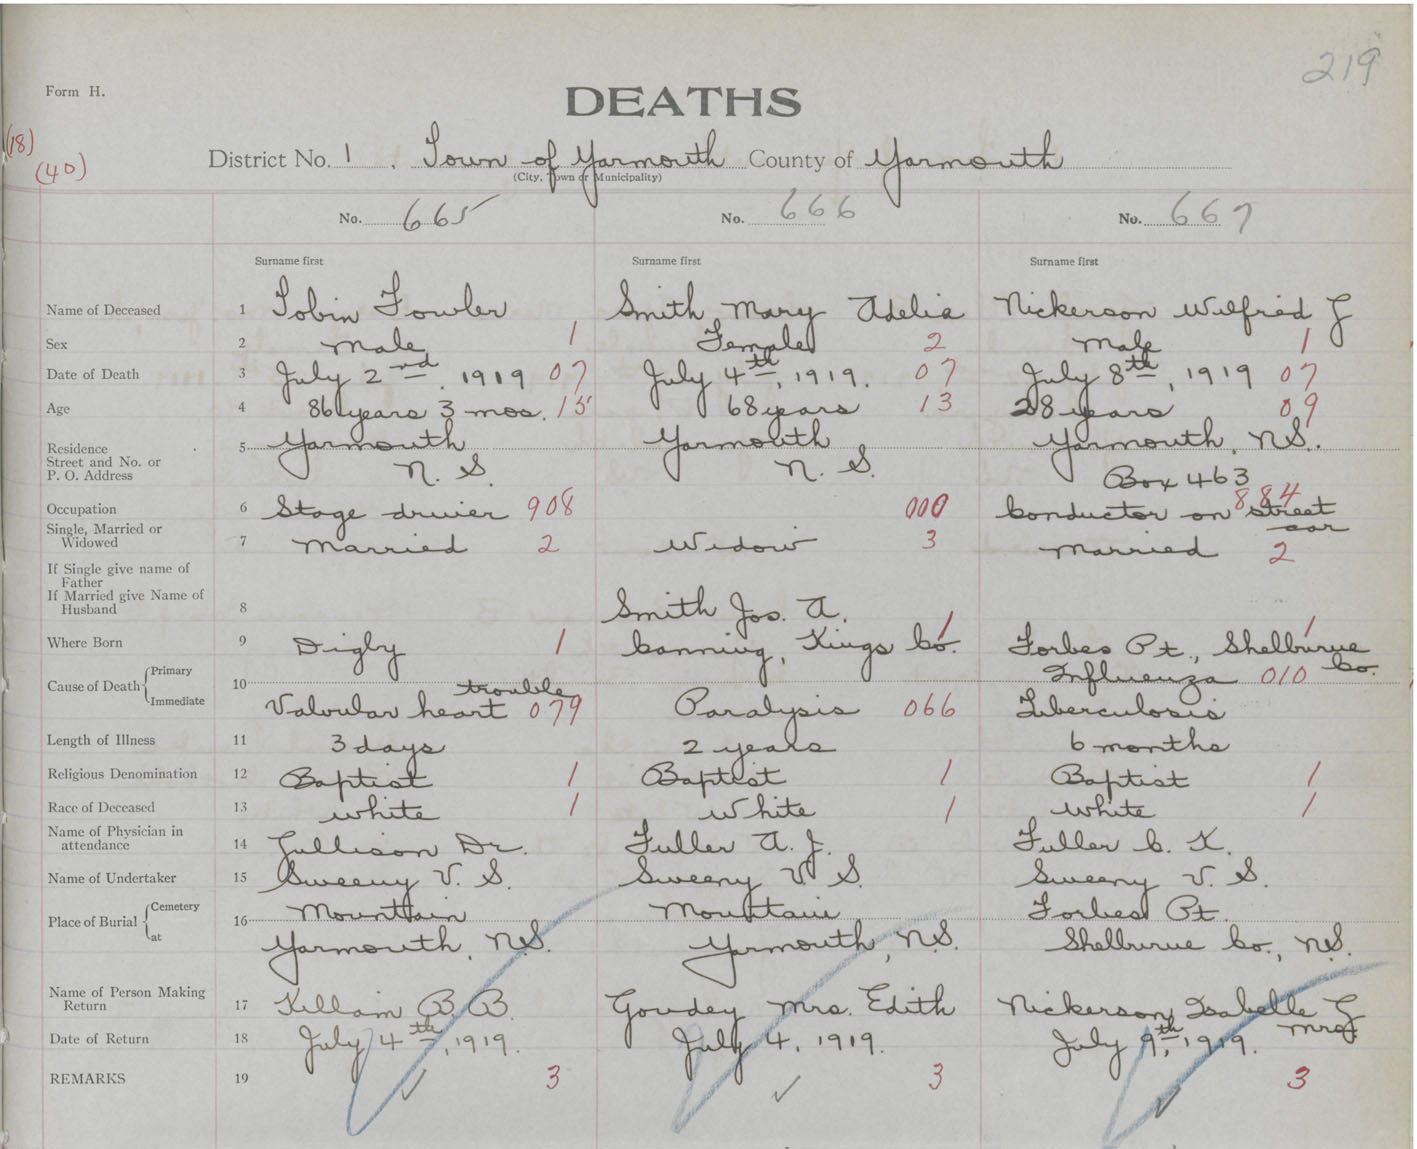 219
Form H.
DEATHS
(18)
(40)
District No. 1. Town of Yarmouth County of Yarmouth
(City, Town or Municipality)
No. 665 No. 666 No. 667
Surname first Surname first Surname first
Name of Deceased 1 Tobin Fowler Smith Mary Adelia Nickerson Wilfred Z
Sex 2 Male 1 Female 2 Male 1
Date of Death 3 July 2nd, 1919 07 July 4th, 1919. 07 July 8th, 1919 07
Age 4 86 years 3 mos. 15 68 years 13 28 years 09
Residence 5 Yarmouth Yarmouth Yarmouth, N.S.
Street and No. or
P. O. Address N. S. N. S. Box 463
Occupation 6 Stage driver 908 000 Conductor on street 884
car
Single, Married or
Widowed 7 Married 2 Widow 3 Married 2
If Single give name of
Father
If Married give Name of
Husband 8 Smith Jos. A.
Where Born 9 Digby 1 Canning, Kings Co. 1 Forbes Pt., Shelburne 1
Co.
Cause of Death Primary 10 trouble Influenza 010
Immediate Valvular heart 079 Paralysis 066 Tuberculosis
Length of Illness 11 3 days 2 years 6 months
Religious Denomination 12 Baptist 1 Baptist 1 Baptist 1
Race of Deceased 13 White 1 White 1 White 1
Name of Physician in
attendance 14 Dr. Fuller A. J. Fuller C. K.
Name of Undertaker 15 Sweeny V. S. Sweeny V S. Sweeny V. S.
Place of Burial Cemetery 16 Mountain Mountain Forbes Pt.
at Yarmouth, N.S. Yarmouth, N.S. Shelburne Co., N.S.
Name of Person Making
Return 17 Killam B B. Goudey Mrs. Edith Nickerson, Isabelle Z
Mrs.
Date of Return 18 July 4th, 1919. July 4, 1919. July 9th, 1919.
REMARKS 19 3 3 3